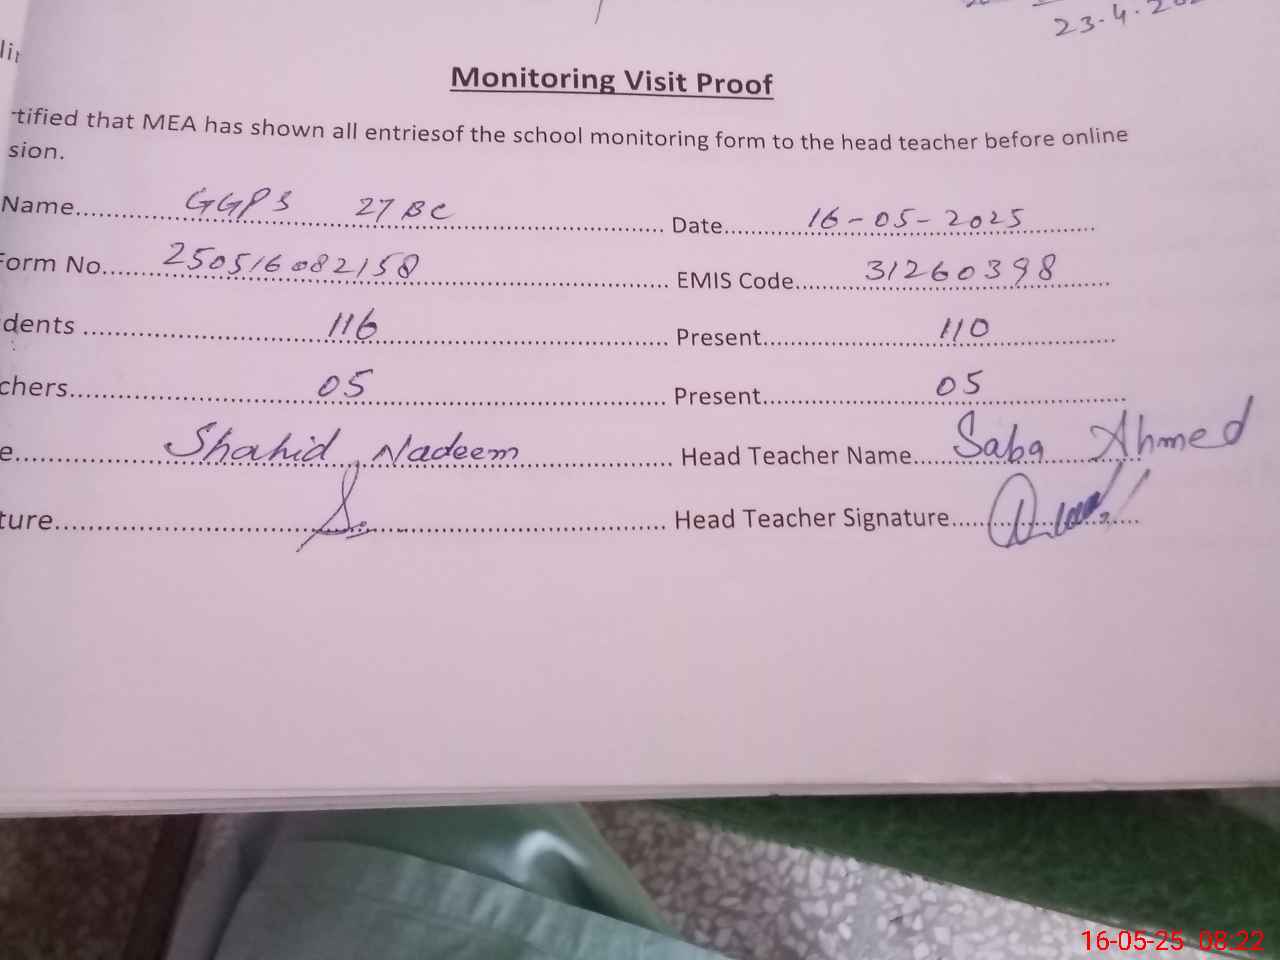 23.4.20
Monitoring Visit Proof
tified that MEA has shown all entriesof the school monitoring form to the head teacher before online
sion.
Name.......... GGPS 27 BC .......... Date.......... 16-05-2025 ..........
Form No.......... 250516082158 .......... EMIS Code.......... 31260398 ..........
dents .......... 116 .......... Present.......... 110 ..........
chers.......... 05 .......... Present.......... 05 ..........
e.......... Shahid Nadeem .......... Head Teacher Name.......... Saba Ahmed
ture.......... Head Teacher Signature..........
16-05-25 08:22